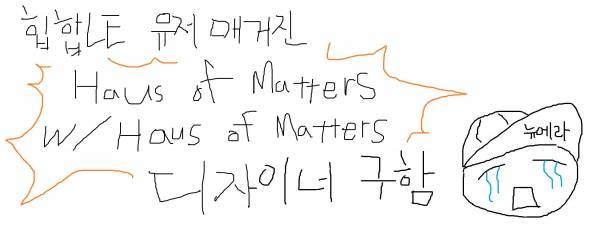 힙합LE 유저 매거진
Haus of Matters
w/ Haus of Matters
디자이너 구함
뉴에라